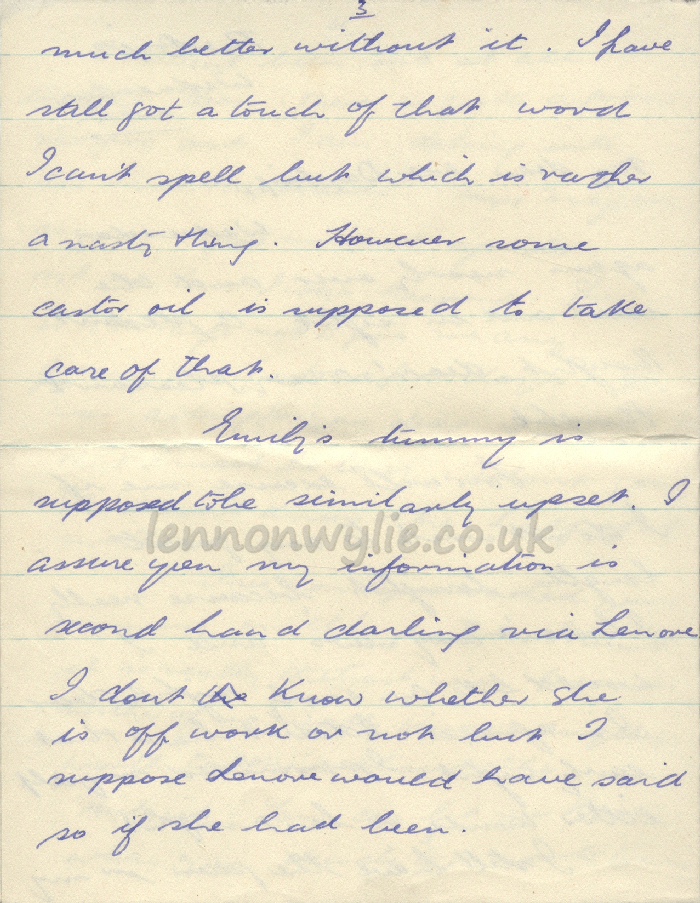 3
much better without it. I have
still got a touch of that word
I can't spell but which is rather
a nasty thing. However some
castor oil is supposed to take
care of that.
Emily's tummy is
supposed to be similarly upset. I
lennonwylie.co.uk
assure you my information is
second hand darling via Lenore
I dont the know whether she
is off work or not but I
suppose Lenore would have said
so if she had been.